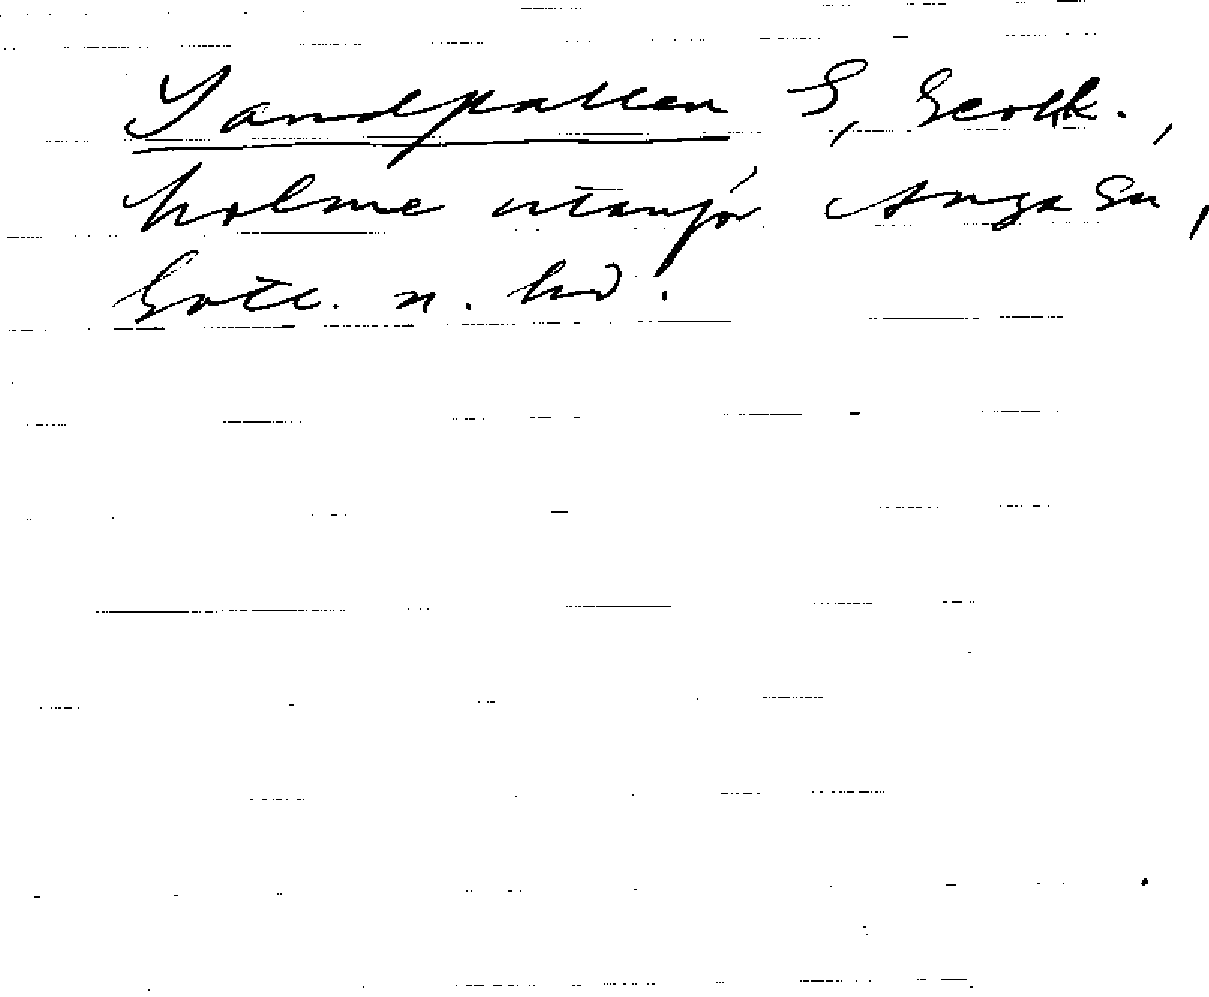 Sandpallen S, Geolk.,
holme utanför Anga Sn,
Gotl. n. hd.